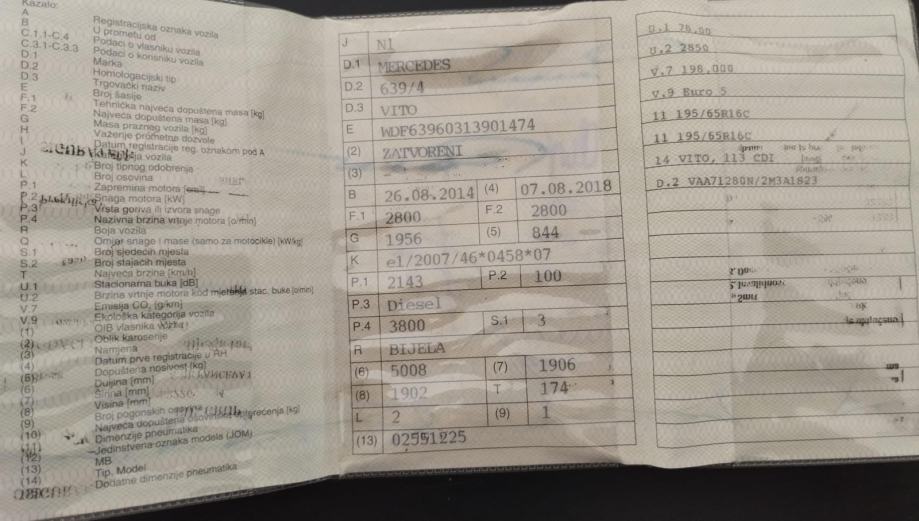 Kazalo:
A Registracijska oznaka vozila
B U prometu od
C.1.1-C.4 Podaci o vlasniku vozila
C.3.1-C.3.3 Podaci o korisniku vozila
D.1 Marka
D.2 Homologacijski tip
D.3 Trgovački naziv
E Broj šasije
F.1 Tehnička najveća dopuštena masa [kg]
F.2 Najveća dopuštena masa [kg]
G Masa praznog vozila [kg]
H Važenje prometne dozvole
I Datum registracije reg. oznakom pod A
J vozila
K Broj tipnog odobrenja
L Broj osovina
P.1 Zapremina motora
P.2 Snaga motora [kW]
P.3 Vrsta goriva ili izvora snage
P.4 Nazivna brzina vrtnje motora [o/min]
R Boja vozila
Q Omjer snage i mase (samo za motocikle) [kW/kg]
S.1 Broj sjedećih mjesta
S.2 Broj stajaćih mjesta
T Najveća brzina [km/h]
U.1 Stacionarna buka [dB]
U.2 Brzina vrtnje motora kod mjerenja stac. buke [o/min]
V.7 Emisija CO₂ [g/km]
V.9 Ekološka kategorija vozila
(1) OIB vlasnika
(2) Oblik karoserije
(3) Namjena
(4) Datum prve registracije u RH
(5) Dopuštena nosivost [kg]
(6) Dužina [mm]
(7) Širina [mm]
(8) Visina [mm]
(9) Broj pogonskih
(10) Najveća dopuštena [kg]
(11) Dimenzije pneumatika
(12) Jedinstvena oznaka modela (JOM)
(13) MB
(14) Tip, Model
Dodatne dimenzije pneumatika
J N1
D.1 MERCEDES
D.2 639/4
D.3 VITO
E WDF63960313901474
(2) ZATVORENI
(3) -
B 26.08.2014 (4) 07.08.2018
F.1 2800 F.2 2800
G 1956 (5) 844
K e1/2007/46*0458*07
P.1 2143 P.2 100
P.3 Diesel
P.4 3800 S.1 3
R BIJELA
(6) 5008 (7) 1906
(8) 1902 T 174
L 2 (9) 1
(13) 02551225
U.1 76.00
U.2 2850
V.7 198.000
V.9 Euro 5
11 195/65R16C
11 195/65R16C
14 VITO, 113 CDI
D.2 VAA71280N/2M3A1823